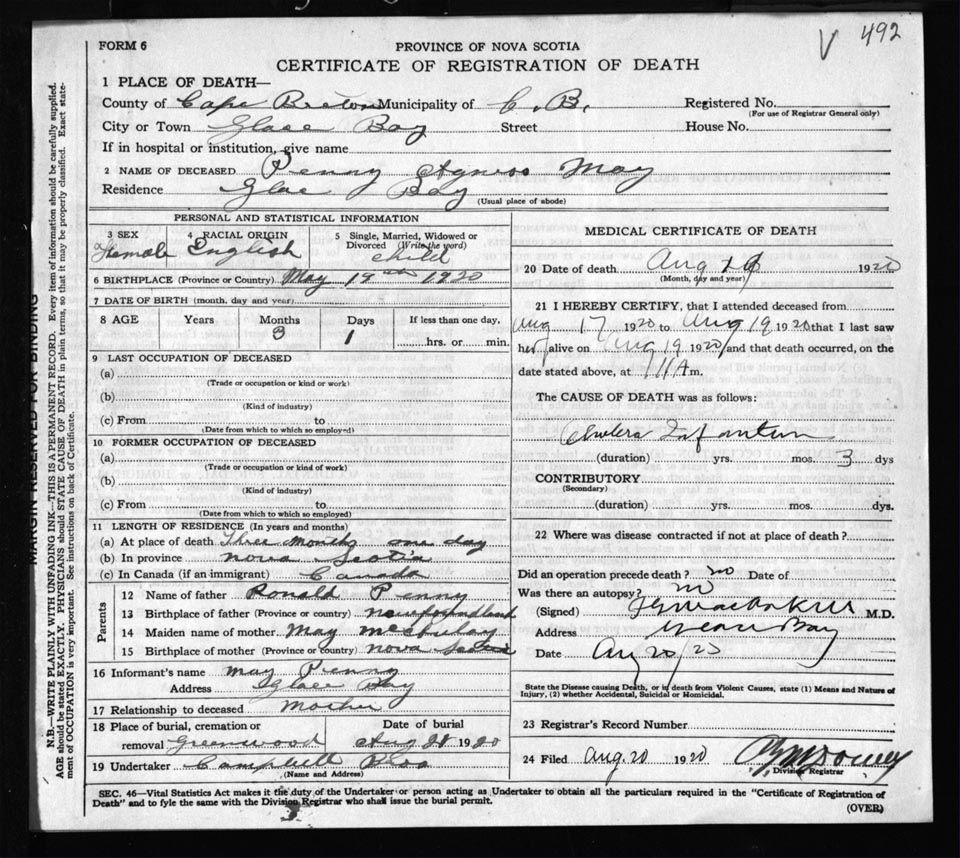 V 492
FORM 6
PROVINCE OF NOVA SCOTIA
CERTIFICATE OF REGISTRATION OF DEATH
1 PLACE OF DEATH—
County of Cape Breton Municipality of C. B. Registered No.
(For use of Registrar General only)
City or Town Glace Bay Street House No.
If in hospital or institution, give name
2 NAME OF DECEASED Penny Agness May
Residence Glace Bay
(Usual place of abode)
PERSONAL AND STATISTICAL INFORMATION
3 SEX 4 RACIAL ORIGIN 5 Single, Married, Widowed or Divorced (Write the word)
Female English child
6 BIRTHPLACE (Province or Country) May 19th 1920
7 DATE OF BIRTH (month, day and year)
8 AGE Years Months Days If less than one day,
3 1 hrs. or min.
9 LAST OCCUPATION OF DECEASED
(a)
(Trade or occupation or kind or work)
(b)
(Kind of industry)
(c) From to
(Date from which to which so employed)
10 FORMER OCCUPATION OF DECEASED
(a)
(Trade or occupation or kind of work)
(b)
(Kind of industry)
(c) From to
(Date from which to which so employed)
11 LENGTH OF RESIDENCE (In years and months)
(a) At place of death Three months one day
(b) In province Nova Scotia
(c) In Canada (if an immigrant) Canada
Parents
12 Name of father Ronald Penny
13 Birthplace of father (Province or country) Newfoundland
14 Maiden name of mother May
15 Birthplace of mother (Province or country) Nova Scotia
16 Informant's name May Penny
Address Glace Bay
17 Relationship to deceased Mother
18 Place of burial, cremation or Date of burial
removal Greenwood Aug 1920
19 Undertaker Campbell Bros
(Name and Address)
MEDICAL CERTIFICATE OF DEATH
20 Date of death Aug 1920
(Month, day and year)
21 I HEREBY CERTIFY, that I attended deceased from
Aug 17 1920 to Aug 19 1920 that I last saw
her alive on Aug 19 1920 and that death occurred, on the
date stated above, at 11 A m.
The CAUSE OF DEATH was as follows:
Cholera Infantum
(duration) yrs. mos. 3 dys
CONTRIBUTORY
(Secondary)
(duration) yrs. mos. dys.
22 Where was disease contracted if not at place of death?
Did an operation precede death? no Date of
Was there an autopsy? no
(Signed) M.D.
Address Glace Bay
Date Aug 20/20
State the Disease causing Death, or in death from Violent Causes, state (1) Means and Nature of
Injury, (2) whether Accidental, Suicidal or Homicidal.
23 Registrar's Record Number
24 Filed Aug. 20 1920
Division Registrar
SEC. 46—Vital Statistics Act makes it the duty of the Undertaker or person acting as Undertaker to obtain all the particulars required in the "Certificate of Registration of
Death" and to fyle the same with the Division Registrar who shall issue the burial permit.
(OVER)
MARGIN RESERVED FOR BINDING
N.B.—WRITE PLAINLY WITH UNFADING INK—THIS IS A PERMANENT RECORD. Every item of information should be carefully supplied.
AGE should be stated EXACTLY. PHYSICIANS should STATE CAUSE OF DEATH in plain terms, so that it may be properly classified. Exact state-
ment of OCCUPATION is very important. See instructions on back of Certificate.